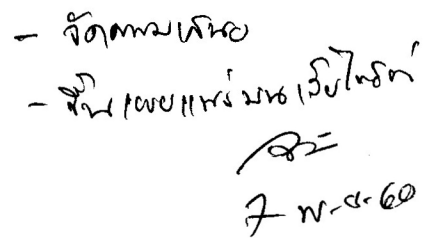 - จัดตามเสนอ
- ขึ้นเผยแพร่บนเว็บไซต์
7 พ.ย. 60